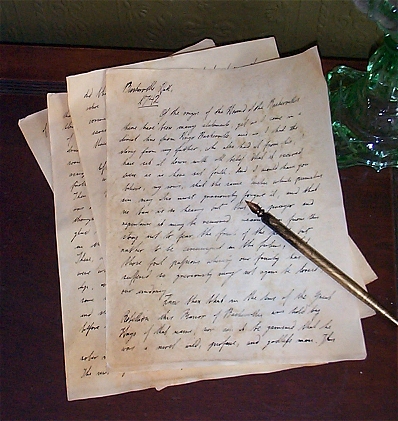 Baskerville Hall,
1742
Of the origin of the Hound of the Baskervilles
there have been many statements, yet as I come in a
direct line from Hugo Baskerville, and as I had the
story from my father, who also had it from his, I
have set it down with all belief that it occurred
even as is here set forth. And I would have you
believe, my sons, that the same Justice which punishes
sin may also most graciously forgive it, and that
no ban is so heavy but that by prayer and
repentance it may be removed. Learn then from this
story not to fear the fruits of the past, but
rather to be circumspect in the future, that
those foul passions whereby our family has
suffered so grievously may not again be loosed
our undoing.
Know then that in the time of the Great
Rebellion this Manor of Baskerville was held by
Hugo of that name, nor can it be gainsaid that he
was a most wild, profane, and godless man. This